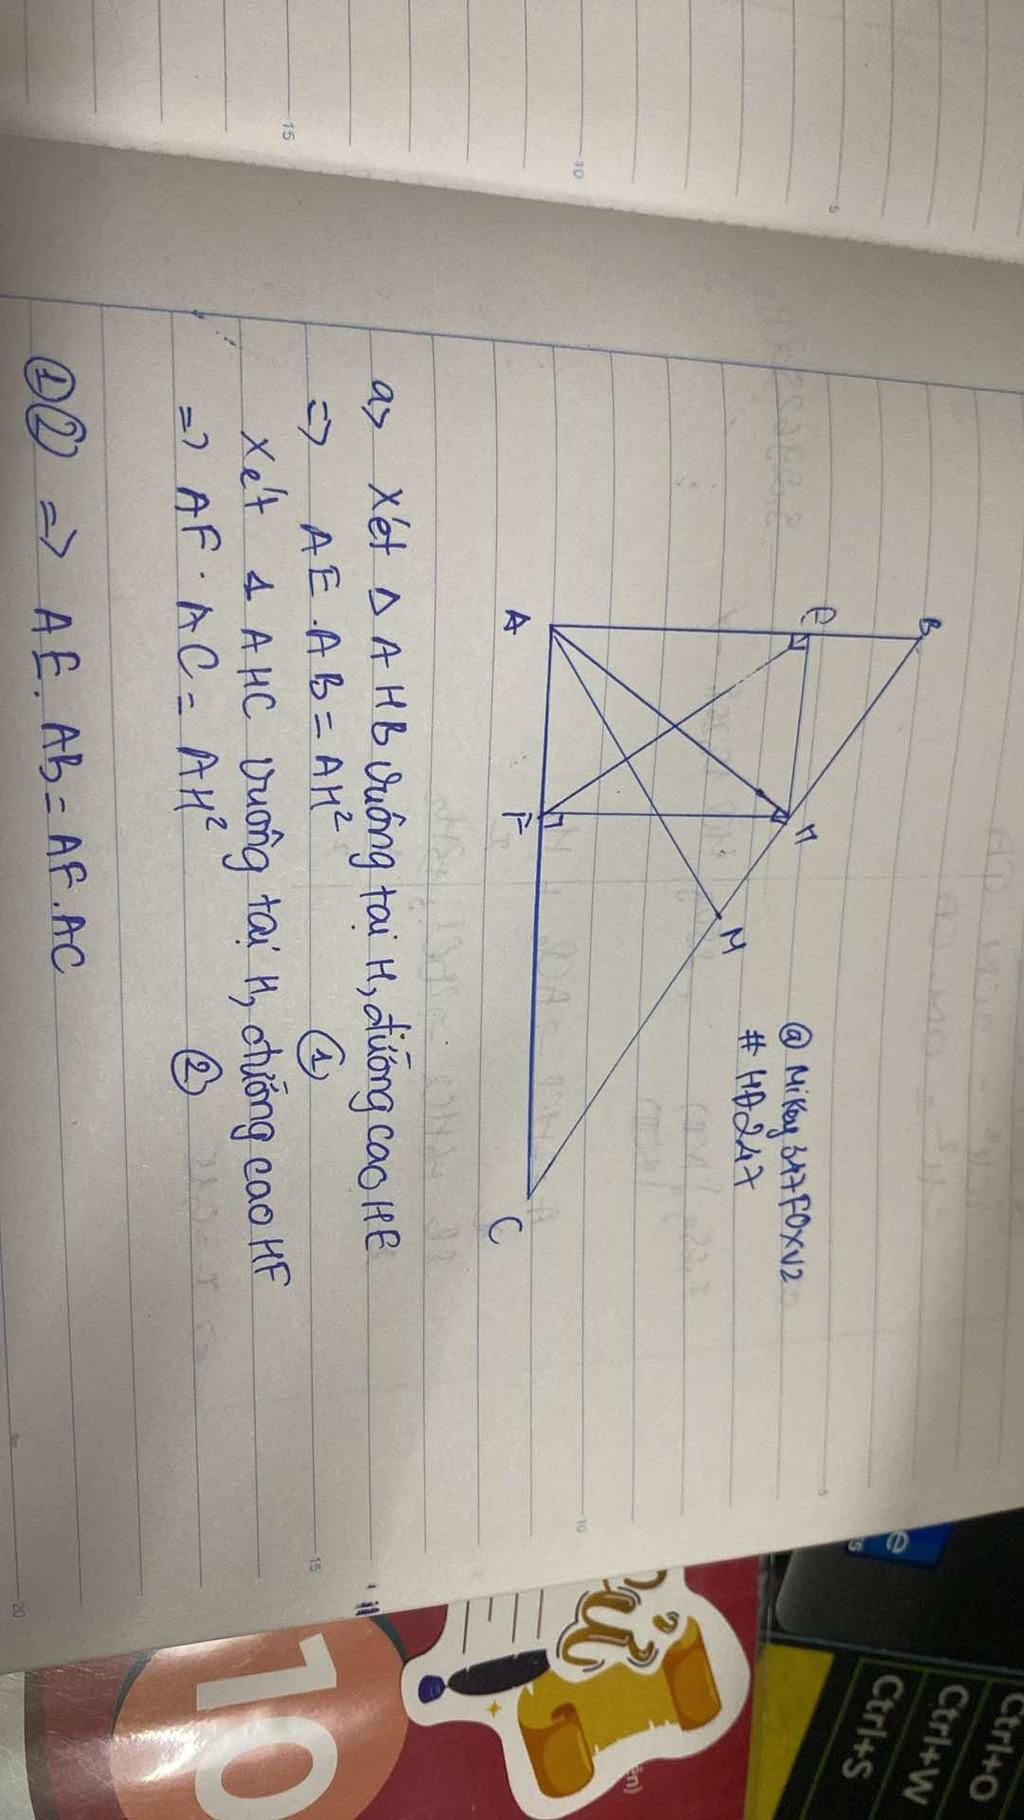 @ Mikey347FOXV2
# HA247
B
E
H
M
A
F
C
a> Xét Δ AHB vuông tại H, đường cao HE
=> AE.AB = AH² ①
Xét Δ AHC vuông tại H, đường cao HF
=> AF.AC = AH² ②
①② => AE.AB = AF.AC
5
10
15
5
10
15
20
10
Ctrl+O
Ctrl+W
Ctrl+S